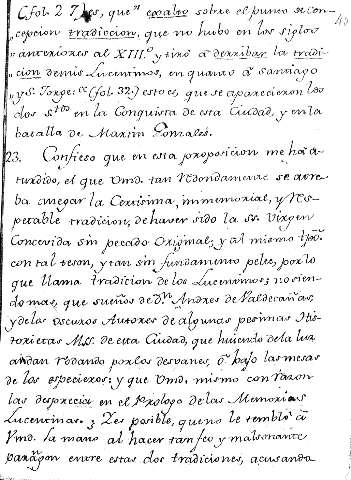 (fol. 27) es, que exalto sobre el punto de con-
cepcion tradiccion, que no hubo en los siglos
anteriores al XIII.º y tiró à derribar la tradi-
cion de mis Lucentinos, en quanto à Santiago
y S. Jorge: (fol. 32.) esto es, que se aparecieron los
dos S.tos en la Conquista de esta Ciudad, y en la
batalla de Martin Gonzales.
23. Confieso que en esta proposicion me ha a-
turdido, el que Vmd. tan redondamente se atre-
ba à negar la Certisima, immemorial, y res-
petable tradicion, de haver sido la SS. Virgen
Concevida sin pecado Original; y al mismo tpo.
con tal teson, y tan sin fundamento pelee, por lo
que llama tradicion de los Lucentinos; no sien-
do mas, que sueños de Dn. Andres de Valdecañas,
y de los oscuros Autores de algunas pesimas His-
torietas Mss. de esta Ciudad, que huiendo de la luz
andan rodando por los desvanes, ô bajo las mesas
de los especieros: y que Vmd. mismo con razon
las desprecia en el Prologo de las Memorias
Lucentinas. ¿ Y es posible, que no le temblo à
Vmd. la mano al hacer tan feo y malsonante
paragon entre estas dos tradiciones, acusando